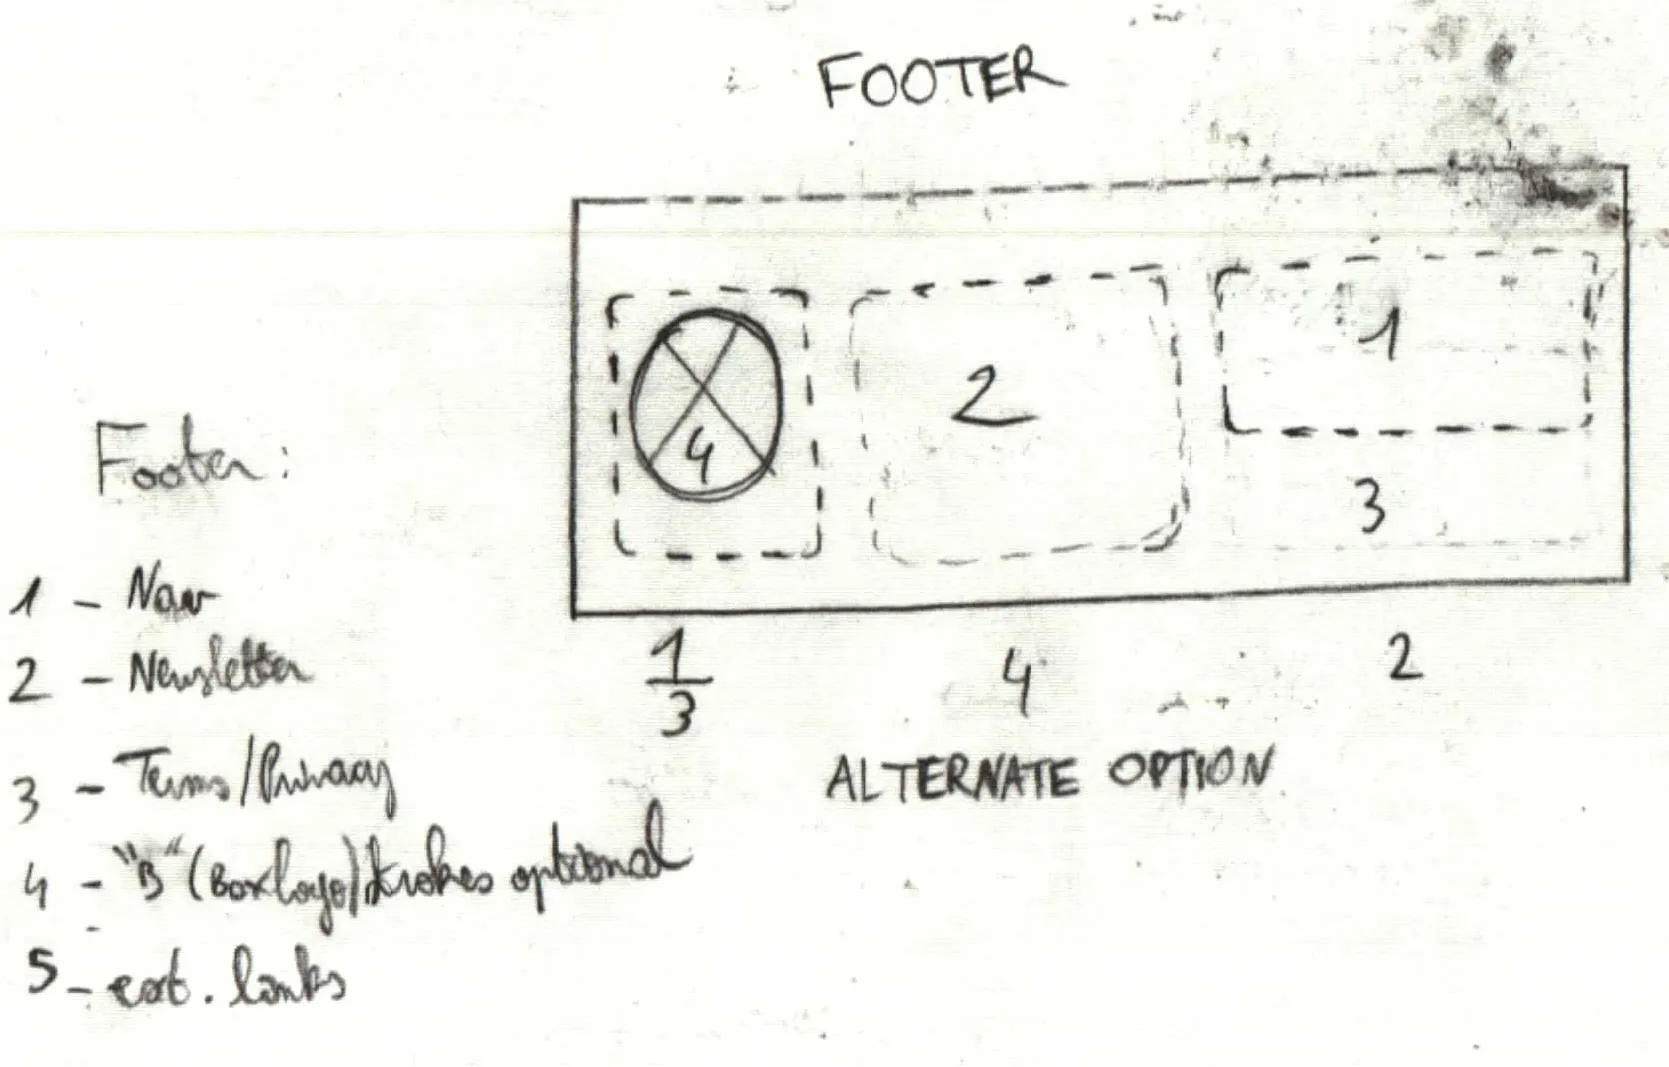 FOOTER
4
2
1
3
Footer:
1 - Nav
2 - Newsletter
3 - Terms/Privacy
4 - "B" (Box logo) strokes optional
5 - ext. links
1
3
4
2
ALTERNATE OPTION